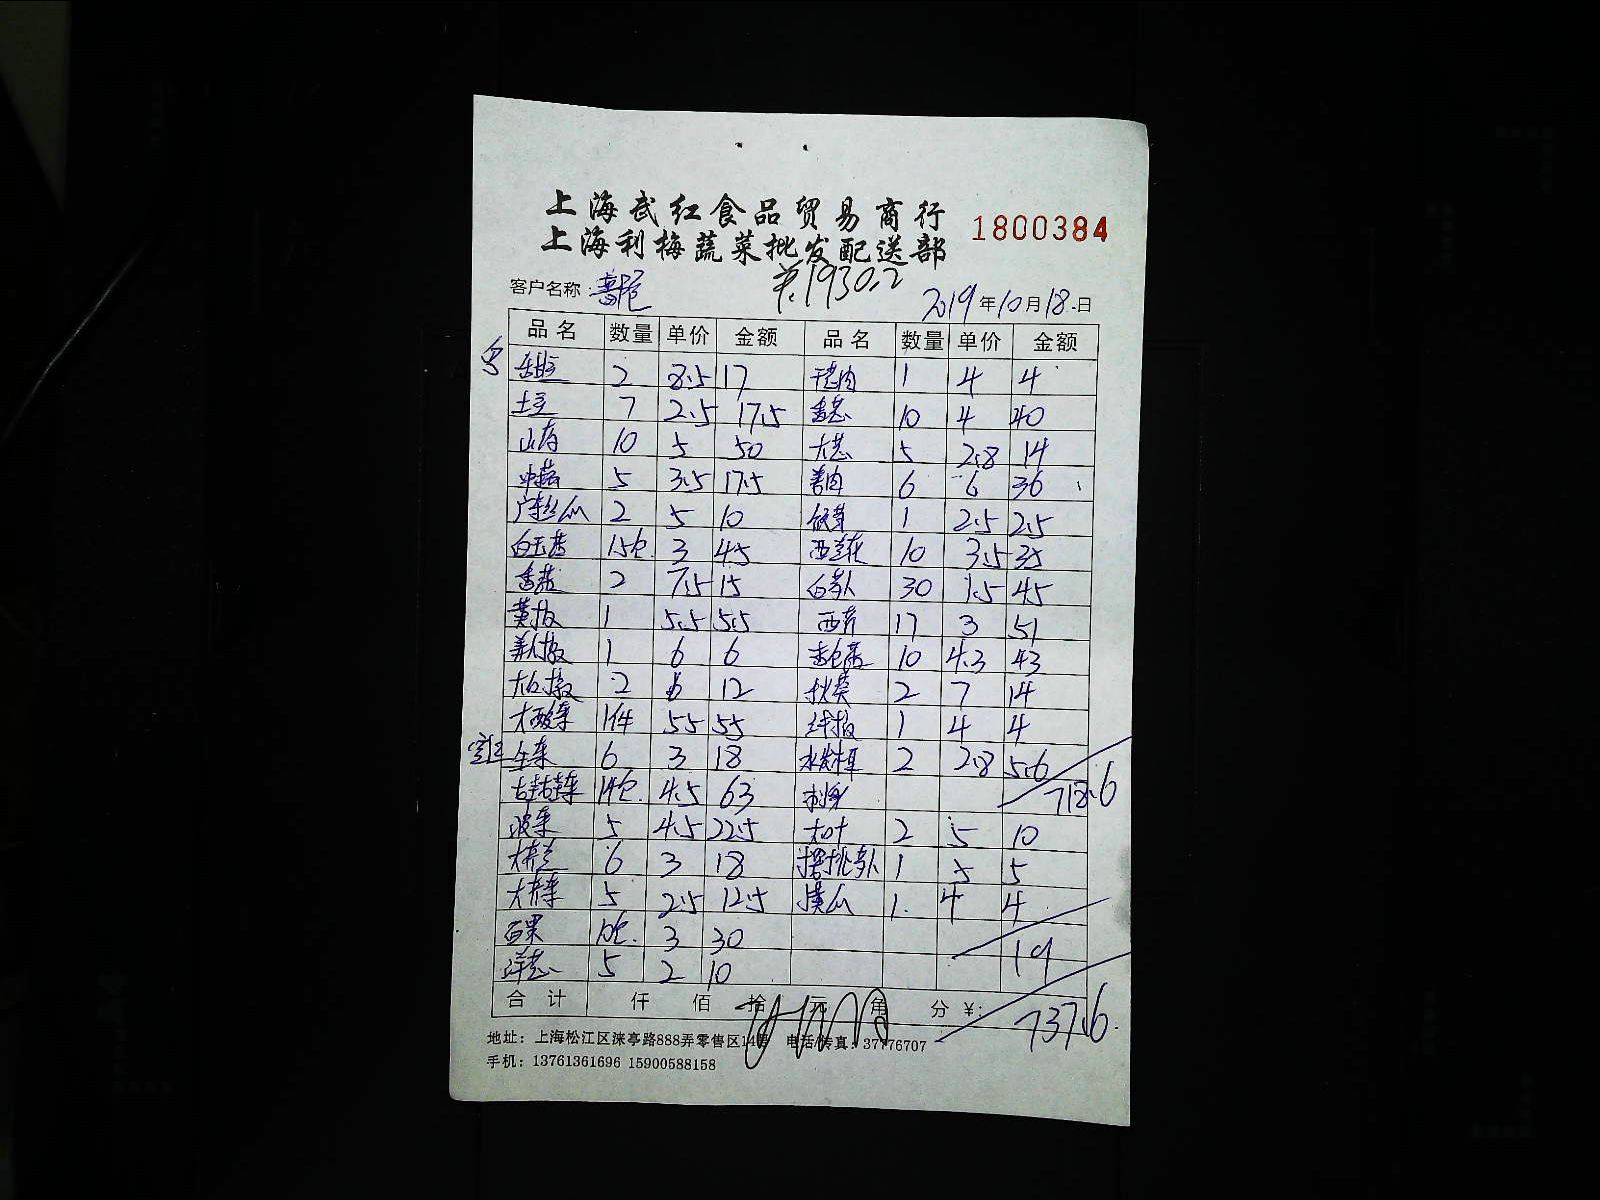 上海武红食品贸易商行
上海利梅蔬菜批发配送部
1800384
1930.2
客户名称:
2019年10月18日
品名 数量 单价 金额 品名 数量 单价 金额
2 8.5 17 1 4 4
土豆 7 2.5 17.5 香葱 10 4 40
山药 10 5 50 大葱 5 2.8 14
5 3.5 17.5 姜肉 6 6 36
2 5 10 1 2.5 2.5
白玉菇 15包 3 45 西兰花 10 3.5 35
香菇 2 7.5 15 白萝卜 30 1.5 45
黄椒 1 5.5 5.5 西芹 17 3 51
美人椒 1 6 6 杏鲍菇 10 4.3 43
大红椒 2 6 12 秋葵 2 7 14
大酸菜 1件 55 55 线椒 1 4 4
生菜 6 3 18 2 2.8 5.6
14包 4.5 63 刺身 718.6
菠菜 5 4.5 22.5 大叶 2 5 10
大芹菜 6 3 18 1 5 5
5 2.5 12.5 黄瓜 1 4 4
10包 3 30 19
洋葱 5 2 10
合计 仟 佰 拾 元 角 分 ¥: 737.6
地址:上海松江区涞亭路888弄零售区14 电话/传真:37776707
手机:13761361696 15900588158